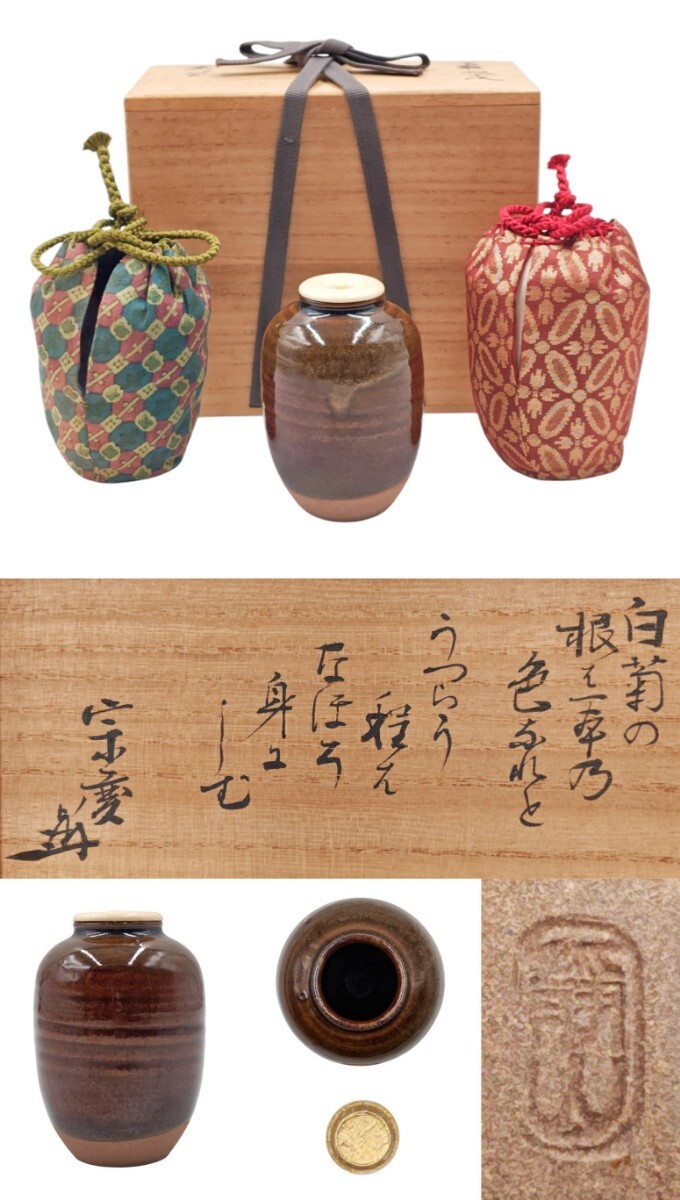 白菊の
根は一本乃
色なれと
うつらう
程は
なほそ
身に
しむ
宗慶